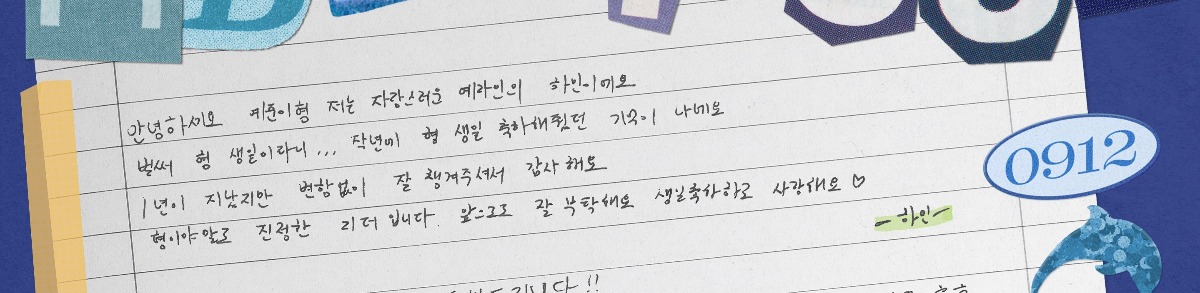 안녕하세요 예준이형 저는 자랑스러운 예라인의 하인이에요
벌써 형 생일이라니... 작년에 형 생일 축하해줬던 기억이 나네요
1년이 지났지만 변함없이 잘 챙겨주셔서 감사해요
형이야말로 진정한 리더입니다. 앞으로도 잘 부탁해요 생일축하하고 사랑해요♡
-하인-
0912